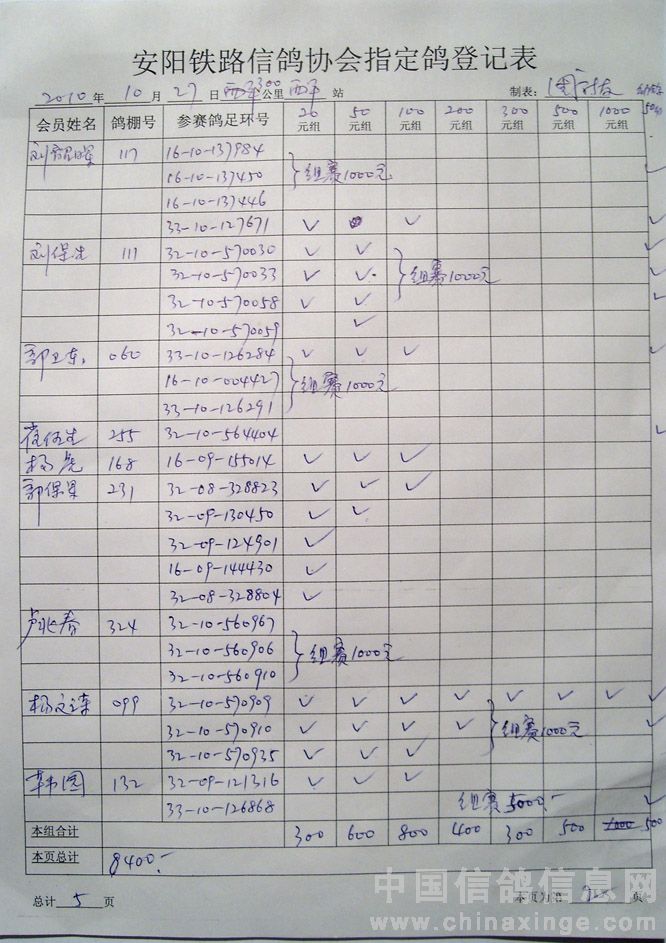 安阳铁路信鸽协会指定鸽登记表
2010 年 10 月 27 日 西平 300 公里 西平 站 制表:
会员姓名 鸽棚号 参赛鸽足环号 20元组 50元组 100元组 200元组 300元组 500元组 1000元组
117 16-10-137984
16-10-137450 组赛1000元
16-10-137446
33-10-127671 ✓ ✓
刘保生 111 32-10-570030 ✓ ✓
32-10-570033 ✓ ✓ 组赛1000元
32-10-570058 ✓ ✓
32-10-570059 ✓
郭卫东 060 33-10-126284 ✓ ✓ ✓
16-10-004427 组赛1000元
33-10-126291
255 32-10-564404 ✓
杨虎 168 16-09-155014 ✓ ✓ ✓
郭保 231 32-08-328823 ✓ ✓ ✓
32-09-130450 ✓ ✓
32-09-124901 ✓
16-09-144430 ✓
32-08-328804 ✓
324 32-10-560967
32-10-560906 组赛1000元
32-10-560910
杨文 099 32-10-570909 ✓ ✓ ✓ ✓ ✓ ✓ ✓ ✓
32-10-570910 ✓ ✓ ✓ ✓ 组赛1000元 ✓
32-10-570935 ✓ ✓ ✓
韩国 132 32-09-121316 ✓ ✓ ✓
33-10-126868 组赛5000.-
本组合计 300 600 800 400 300 500 1000 500
本页总计 8400.-
总计 5 页 本页为第 页
中国信鸽信息网
www.chinaxinge.com